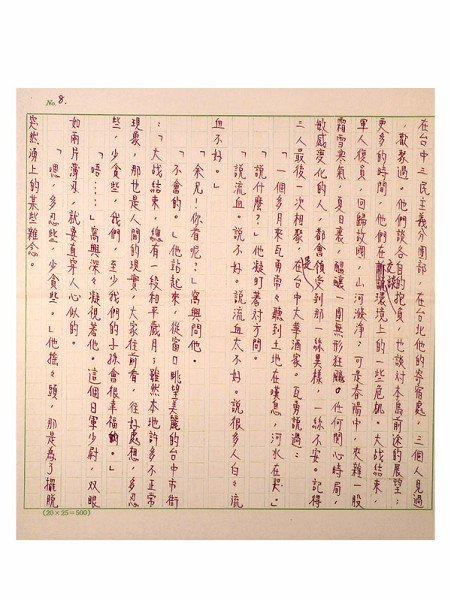 No. 8.
在台中三民主義分團部，在台北他的寄宿處，三個人見過
，歡聚過。他們談各自的抱負，也談對本島前途的展望；
更多的時間，他們在談談環境上的一些危机。大战結束，
軍人復員，回歸故國，山河澄淨；可是春陽中，夾雜一股
霜雪寒氣，夏日裏，醞釀一團無形狂飈。任何関心時局，
敏感変化的人，都會後受到那一絲異樣，一絲不安。記得
三人最後一次相聚，是在台中大華酒家。瓦勇說過：
「一個多月來瓦勇常々聽到土地在嘆息，河水在哭。」
「說什麼？」他凝盯着对方問。
「說流血，說不好。說流血太不好。說很多人白々流
血不好。」
「余兄！你看呢？」寓興問他。
「不會的。」他站起來，從窗口眺望美麗的台中市街
：「大战結束，總有一段和平歲月；雖然本地許多不正常
現象，那也是人間的現實，大家往前看，往好処想，多忍
些，少貪些，我們，至少我們的子孫會很幸福的。」
「唔……」寓興深々凝視着他。這個日軍少尉，双眼
如兩片薄刃，就要直穿人心似的。
「嗯，多忍些，少貪些。」他搖々頭，那是為了擺脫
突然湧上的某些雜念。
(20×25=500)